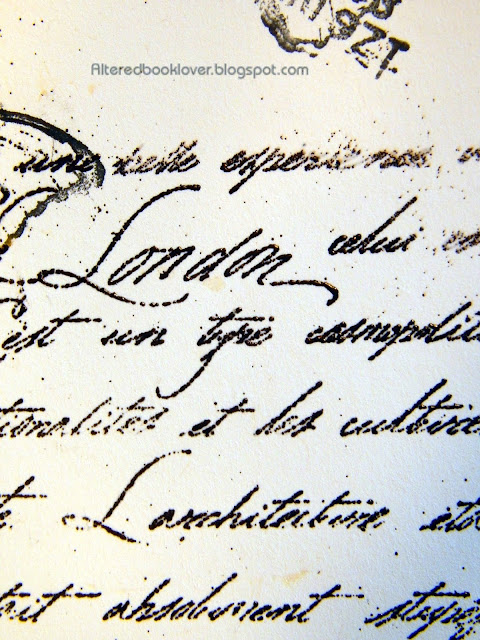 Alteredbooklover.blogspot.com
une belle experience
London celui
est un type cosmopolit
tionalites et les cultures
L'architecture
tait absolument